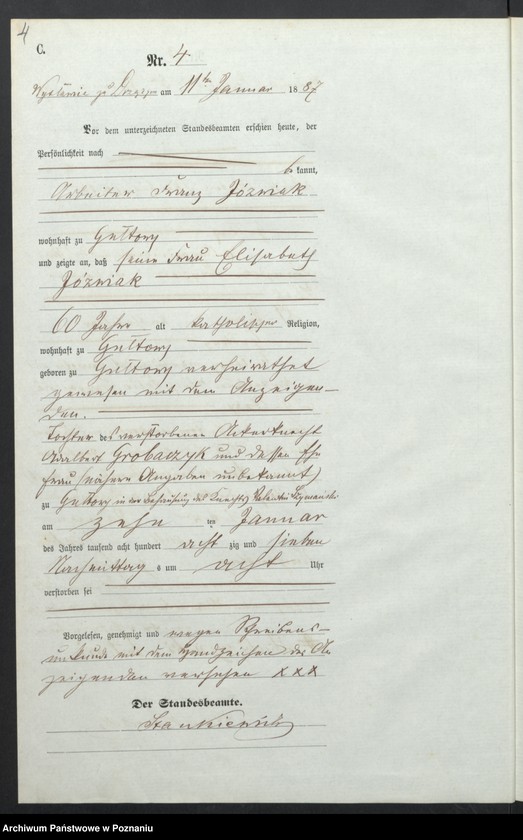 4
C.
Nr. 4
zu am 11ten Januar 1887
Vor dem unterzeichneten Standesbeamten erschien heute, der
Persönlichkeit nach
bekannt,
Arbeiter Franz Józwiak
wohnhaft zu Gultowy
und zeigte an, daß seine Frau Elisabeth
Józwiak
60 Jahre alt katholischer Religion,
wohnhaft zu Gultowy
geboren zu Gultowy verheirathet
gewesen mit dem Anzeigen-
den.
Tochter des verstorbenen Ackerknecht
Adalbert Grobaczyk und dessen Ehe
frau (nähere Angaben unbekannt)
zu Gultowy in der Behausung des Knechts Valentin
am zehn ten Januar
des Jahres tausend acht hundert acht zig und sieben
Nachmittag s um acht Uhr
verstorben sei
Vorgelesen, genehmigt und wegen Schreibens-
unkunde mit dem Handzeichen des An
zeigenden versehen xxx
Der Standesbeamte.
Archiwum Państwowe w Poznaniu